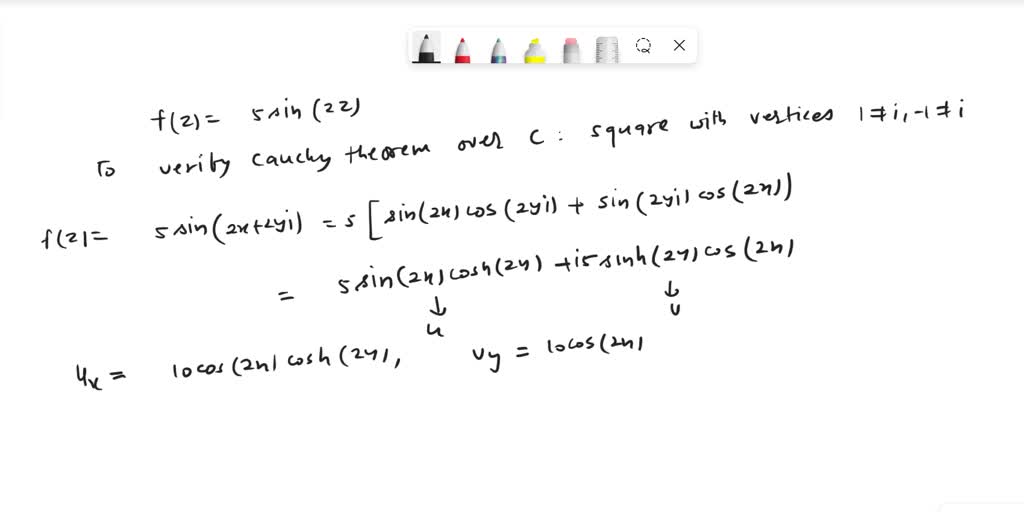 f(z) = 5 sin(2z)
To verify Cauchy theorem over C: square with vertices 1±i, -1±i
f(z) = 5 sin(2x+2yi) = 5 [sin(2x) cos(2yi) + sin(2yi) cos(2x)]
= 5 sin(2x) cosh(2y) + i5 sinh(2y) cos(2x)
↓ ↓
u v
ux = 10 cos(2x) cosh(2y), vy = 10 cos(2x)